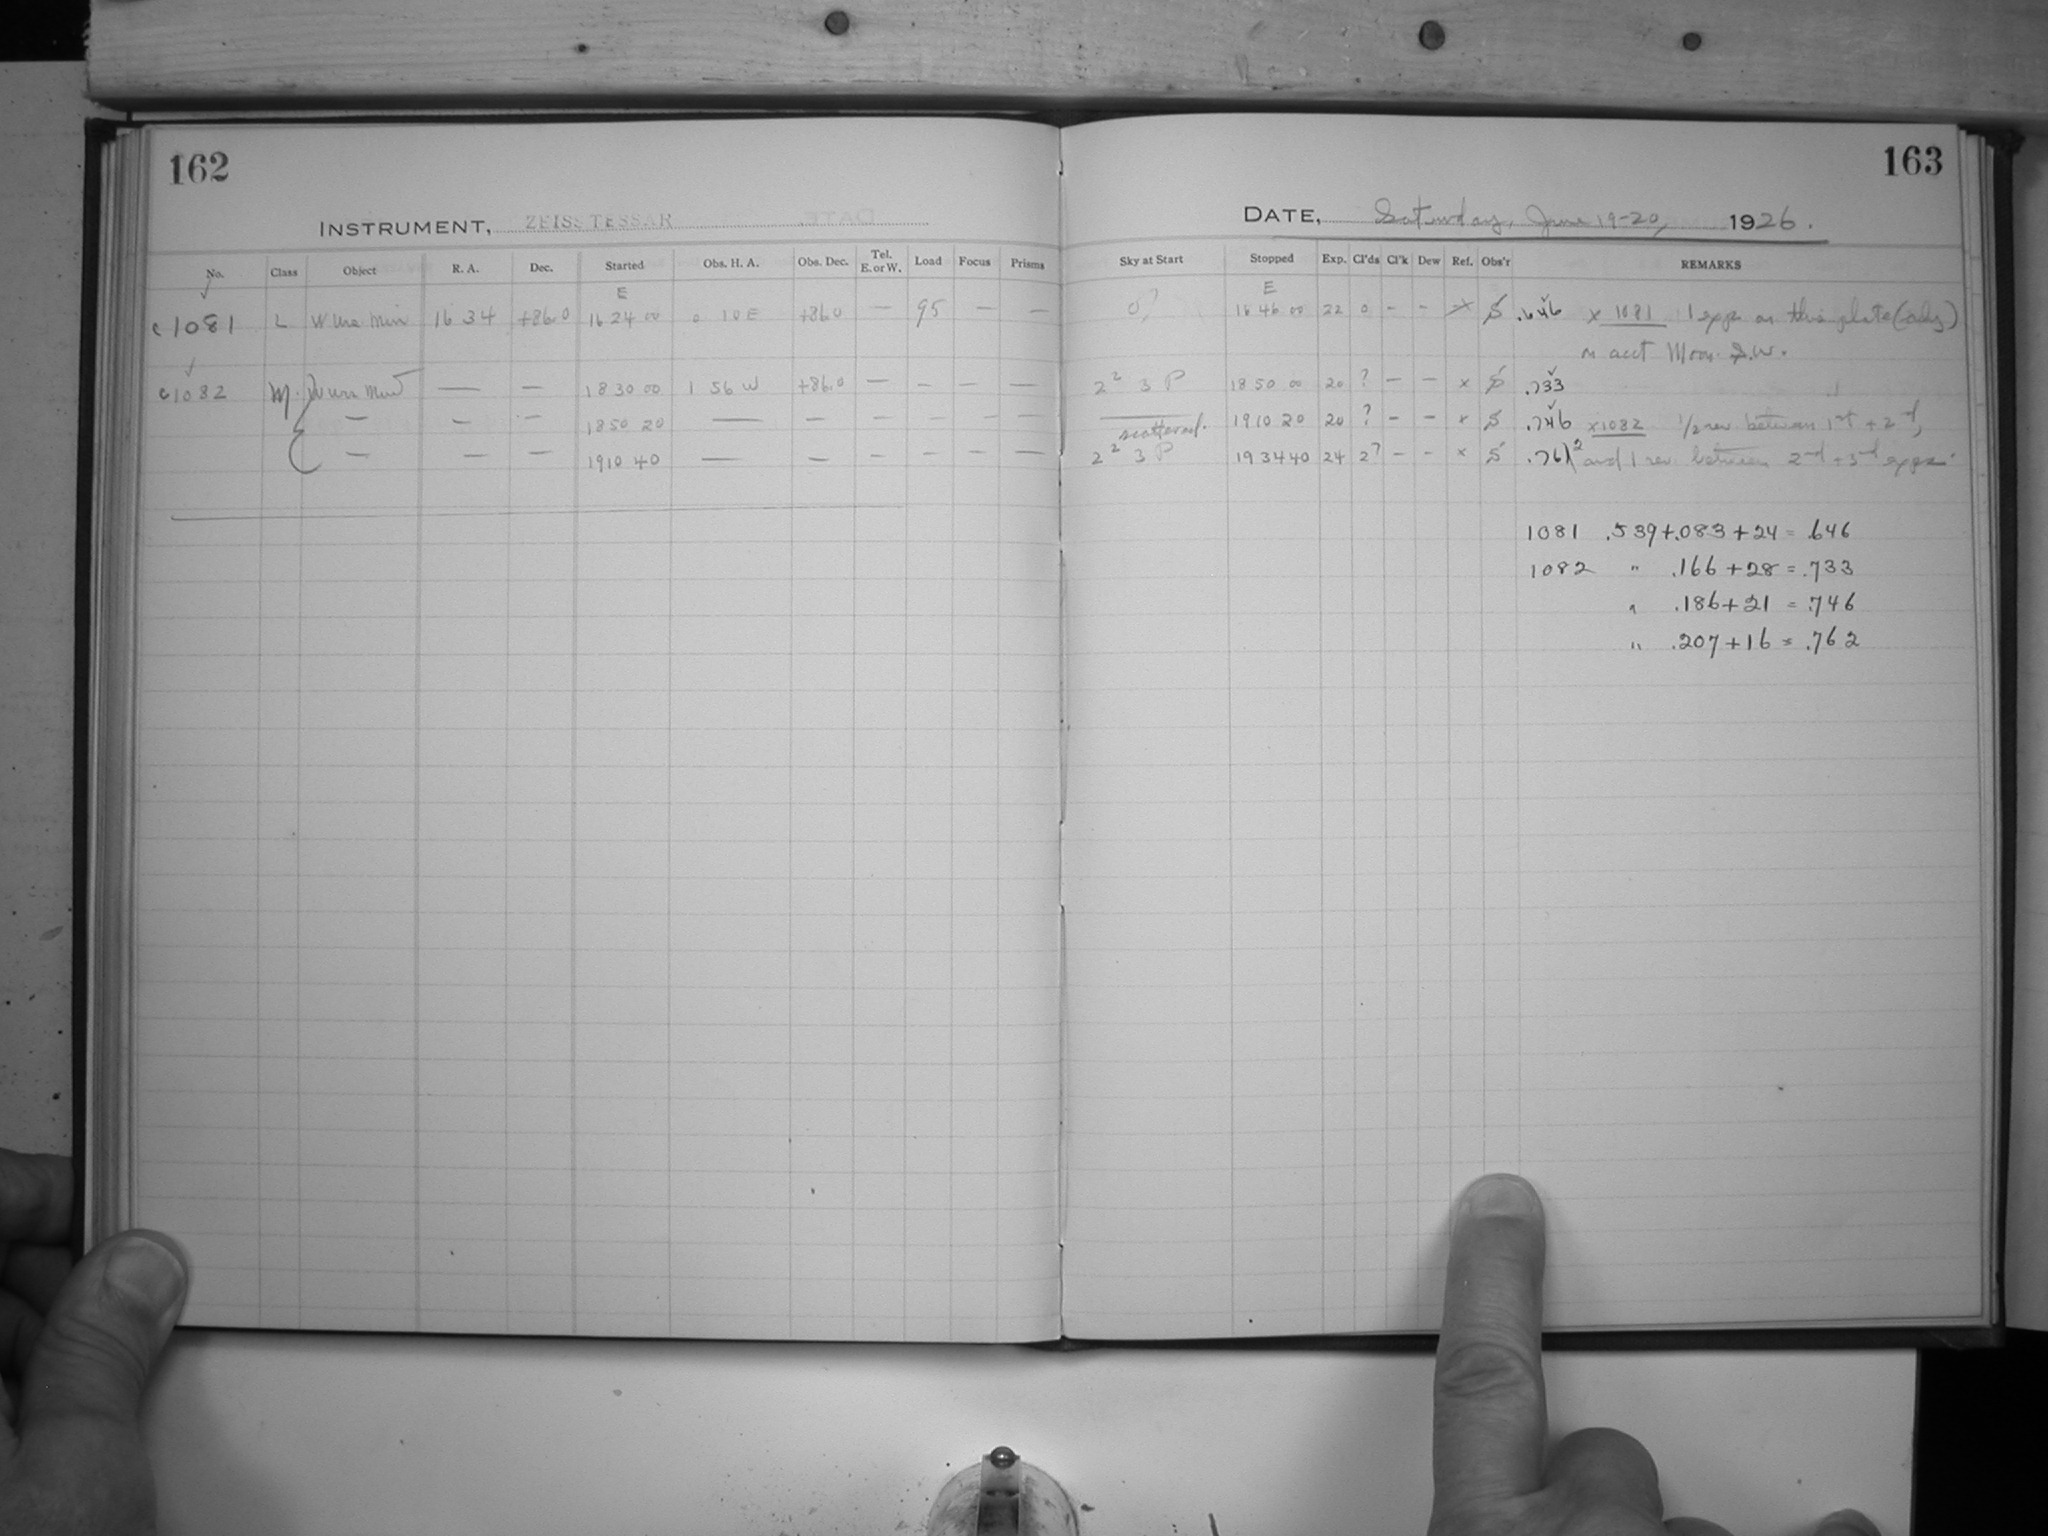 162
163
INSTRUMENT, ZEISS TESSAR
DATE, Saturday, June 19-20, 1926.
No. Class Object R. A. Dec. Started Obs. H. A. Obs. Dec. Tel. E. or W. Load Focus Prisms Sky at Start Stopped Exp. Cl'ds Cl'k Dew Ref. Obs'r REMARKS
E E
c1081 L W Urs Min 16 34 +86.0 16 24 00 0 10 E +86.0 — 95 — — 0? 16 46 00 22 0 - - x S .646 x 1081 1 expo on this plate (only)
on acct Moon S.W.
c1082 M. W Urs Min — — 18 30 00 1 56 W +86.0 — - — — 2² 3 P 18 50 00 20 ? — — x S .733
— — — 18 50 20 — — — - — — — — 19 10 20 20 ? - — x S .746 x1082 1/2 rev. between 1st + 2d,
scattered.
— — — 19 10 40 — — — - — — 2² 3 P 19 34 40 24 2? - - x S .761 2 and 1 rev. between 2nd + 3rd expos.
1081 .539+.083+24 = .646
1082 " .166+28 = .733
" .186+21 = .746
" .207+16 = .762